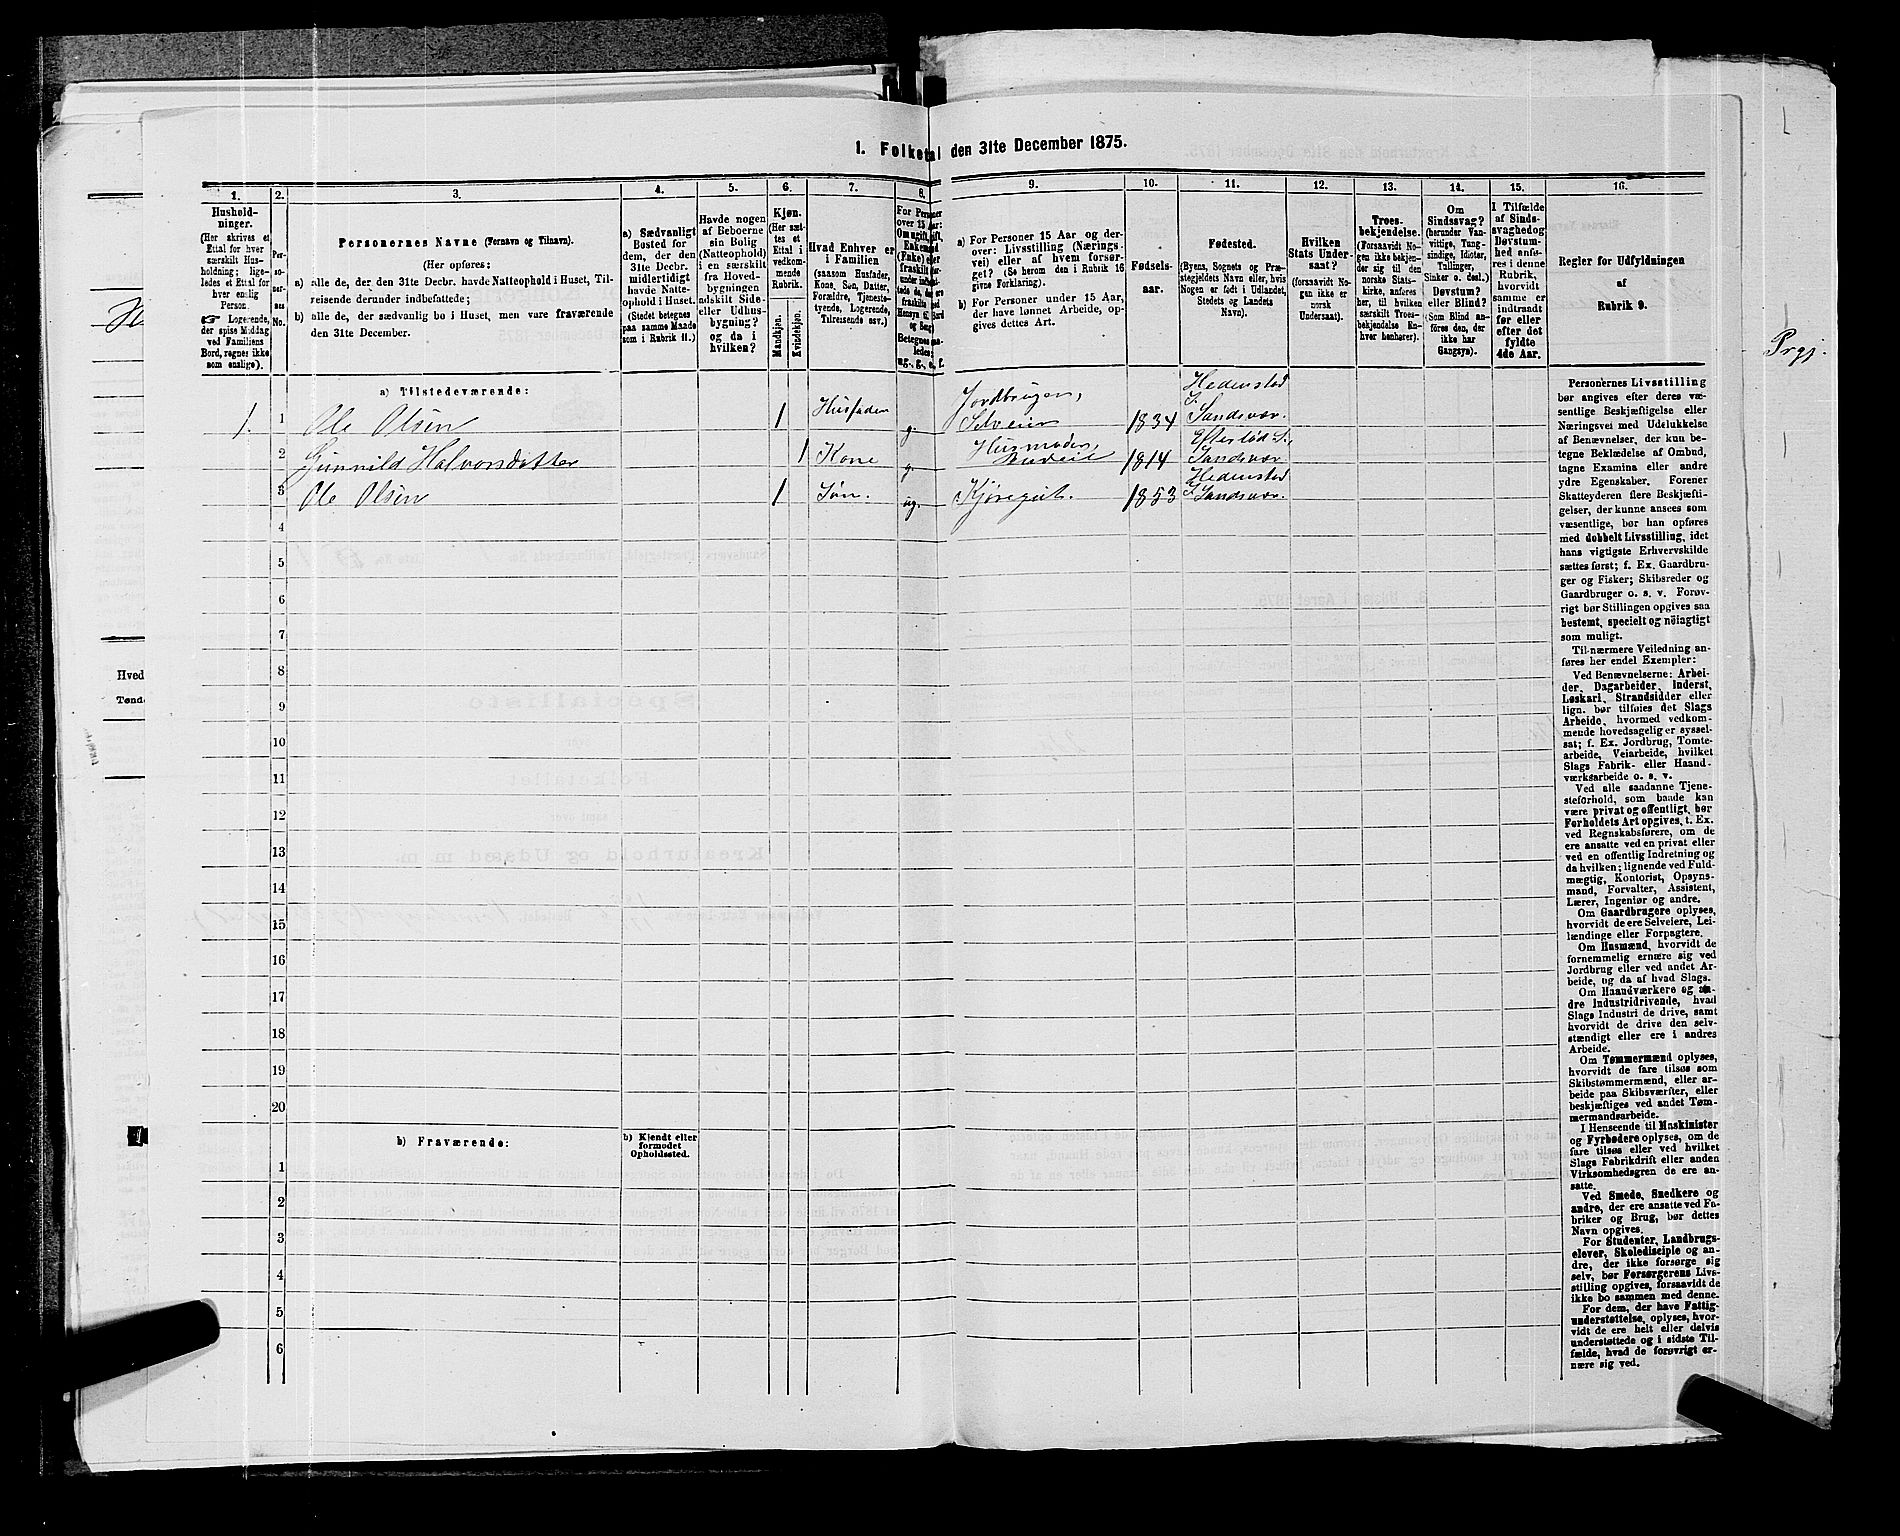 1. Folketal den 31te December 1875.
1.
2.
3.
4.
5.
6.
7.
8.
9.
10.
11.
12.
13.
14.
15.
16.
Hushold-
ninger.
(Her skrives et
Ettal for hver
særskilt Hus-
holdning; lige-
ledes et Ettal for
hver enslig
Person.
☞ Logerende,
der spise Middag
ved Familiens
Bord, regnes ikke
som enslige).
Per-
so-
ner-
nes
No.
Personernes Navne (Fornavn og Tilnavn).
(Her opføres:
a) alle de, der den 31te Decbr. havde Natteophold i Huset, Til-
reisende derunder indbefattede;
b) alle de, der sædvanlig bo i Huset, men vare fraværende
den 31te December.
a) Sædvanligt
Bosted for
dem, der den
31te Decbr.
midlertidigt
havde Natte-
ophold i Huset.
(Stedet betegnes
paa samme Maade
som i Rubrik 11.)
Havde nogen
af Beboerne
sin Bolig
(Natteophold)
i en særskilt
fra Hoved-
bygningen
adskilt Side-
eller Udhus-
bygning?
og da i
hvilken?
Kjøn.
(Her sæt-
tes et
Ettal i
vedkom-
mende
Rubrik.
Mandkjøn.
Kvindekjøn.
Hvad Enhver er
i Familien
(saasom Husfader,
Kone, Søn, Datter,
Forældre, Tjeneste-
tyende, Logerende,
Tilreisende osv.)
For Personer
over 15 Aar:
Om ugift,
Enkemand
(Enke) eller
fraskilt
a) For Personer 15 Aar og der-
over: Livsstilling (Nærings-
vei) eller af hvem forsør-
get? (Se herom den i Rubrik 16
givne Forklaring).
b) For Personer under 15 Aar,
der have lønnet Arbeide, op-
gives dettes Art.
Fødsels-
aar.
Fødested.
(Byens, Sognets og Præ-
stegjeldets Navn eller, hvis
Nogen er født i Udlandet,
Stedets og Landets
Navn).
Hvilken
Stats Under-
saat?
(forsaavidt No-
gen ikke er
norsk
Undersaat).
Troes-
bekjendelse.
(Forsaavidt No-
gen ikke bekjen-
der sig til den
norske Stats-
kirke, anføres
her, til hvilken
særskilt Troes-
bekjendelse En-
hver henhører).
Om
Sindssvag?
(herunder Van-
vittige, Tung-
sindige, Idioter,
Tullinger,
Sinker o. desl.)
Døvstum?
eller Blind?
(Som Blind an-
føres den, der
ikke har
Gangsyn).
I Tilfælde
af Sinds-
svaghed og
Døvstum-
hed anfø-
res i denne
Rubrik,
hvorvidt
samme er
indtraadt
før eller
efter det
fyldte
4de Aar.
Regler for Udfyldningen
af
Rubrik 9.
a) Tilstedeværende:
1. 1 Ole Olsen 1 Husfader g. Jordbruger, Selveier 1834 Hedenstad S. Sandsvær.
2 Gunnild Halvorsdatter 1 Kone g. Husmoder, 1814 Efteløt S., Sandsvær
3 Ole Olsen 1 Søn. ug. Kjøregut. 1853 Hedenstad S. Sandsvær.
4
5
6
7
8
9
10
11
12
13
14
15
16
17
18
19
20
b) Fraværende:
b) Kjendt eller
formodet
Opholdssted.
1
2
3
4
5
6
Personernes Livsstilling
bør angives efter deres væ-
sentlige Beskjæftigelse eller
Næringsvei med Udelukkelse
af Benævnelser, der kun be-
tegne Beklædelse af Ombud,
tagne Examina eller andre
ydre Egenskaber. Forener
Skatteyderen flere Beskjæfti-
gelser, der kunne ansees som
væsentlige, bør han opføres
med dobbelt Livsstilling, idet
hans vigtigste Erhvervskilde
sættes først; f. Ex. Gaardbru-
ger og Fisker; Skibsreder og
Gaardbruger o. s. v. Forøv-
rigt bør Stillingen opgives saa
bestemt, specielt og nøiagtigt
som muligt.
Til nærmere Veiledning an-
føres her endel Exempler:
Ved Benævnelserne: Arbei-
der, Dagarbeider, Inderst,
Løskarl, Strandsidder eller
lign. bør tilføies det Slags
Arbeide, hvormed vedkom-
mende hovedsagelig er syssel-
sat; f. Ex. Jordbrug, Tomte-
arbeide, Veiarbeide, hvilket
Slags Fabrik- eller Haand-
værksarbeide o. s. v.
Ved alle saadanne Tjene-
steforhold, som baade kan
være privat og offentligt, bør
Forholdets Art opgives, t. Ex.
ved Regnskabsførere, om de
ere ansatte ved en privat eller
ved en offentlig Indretning og
da hvilken; lignende ved Fuld-
mægtig, Kontorist, Opsyns-
mand, Forvalter, Assistent,
Lærer, Ingeniør og andre.
Om Gaardbrugere oplyses,
hvorvidt de ere Selveiere, Lei-
lændinge eller Forpagtere.
Om Husmænd, hvorvidt de
fornemmelig ernære sig ved
Jordbrug eller ved andet Ar-
beide, og da af hvad Slags.
Om Haandværkere og an-
dre Industridrivende, hvad
Slags Industri de drive, samt
hvorvidt de drive den selv-
stændigt eller ere i andres
Arbeide.
Om Tømmermænd oplyses,
hvorvidt de fare tilsøs som
Skibstømmermænd, eller ar-
beide paa Skibsværfter, eller
beskjæftiges ved andet Tøm-
mermandsarbeide.
I Henseende til Maskinister
og Fyrbødere oplyses, om de
fare tilsøs eller ved hvilket
Slags Fabrikdrift eller anden
Virksomhedsgren de ere an-
satte.
Ved Smede, Snedkere og
andre, der ere ansatte ved Fa-
briker og Brug, bør dettes
Navn opgives.
For Studenter, Landbrugs-
elever, Skoledisciple og an-
dre, der ikke forsørge sig
selv, bør Forsørgerens Livs-
stilling opgives, forsaavidt de
ikke bo sammen med denne.
For dem, der have Fattig-
understøttelse, oplyses, hvor-
vidt de ere helt eller delvis
understøttede og i sidste Til-
fælde, hvad de forøvrigt er-
nære sig ved.
Hved
Tønde